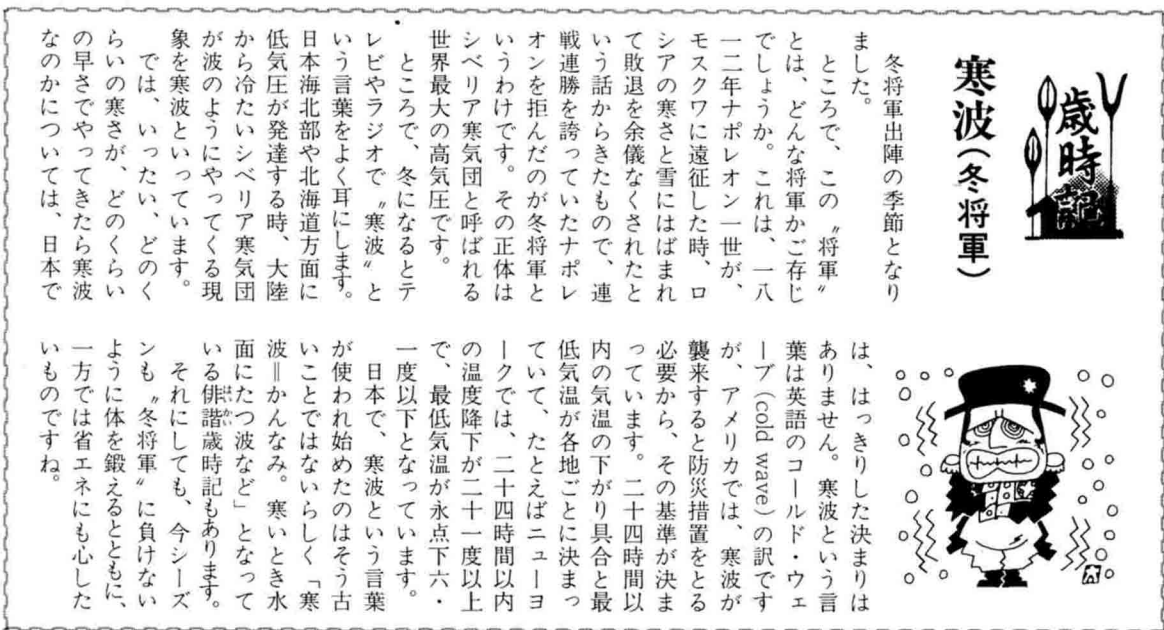 歳時記
寒波（冬将軍）
冬将軍出陣の季節となり
ました。
ところで、この〝将軍〟
とは、どんな将軍かご存じ
でしょうか。これは、一八
一二年ナポレオン一世が、
モスクワに遠征した時、ロ
シアの寒さと雪にはばまれ
て敗退を余儀なくされたと
いう話からきたもので、連
戦連勝を誇っていたナポレ
オンを拒んだのが冬将軍と
いうわけです。その正体は
シベリア寒気団と呼ばれる
世界最大の高気圧です。
ところで、冬になるとテ
レビやラジオで〝寒波〟と
いう言葉をよく耳にします。
日本海北部や北海道方面に
低気圧が発達する時、大陸
から冷たいシベリア寒気団
が波のようにやってくる現
象を寒波といっています。
では、いったい、どのく
らいの寒さが、どのくらい
の早さでやってきたら寒波
なのかについては、日本で
は、はっきりした決まりは
ありません。寒波という言
葉は英語のコールド・ウェ
ーブ（cold wave）の訳です
が、アメリカでは、寒波が
襲来すると防災措置をとる
必要から、その基準が決ま
っています。二十四時間以
内の気温の下がり具合と最
低気温が各地ごとに決まっ
ていて、たとえばニューヨ
ークでは、二十四時間以内
の温度降下が二十一度以上
で、最低気温が氷点下六・
一度以下となっています。
日本で、寒波という言葉
が使われ始めたのはそう古
いことではないらしく「寒
波＝かんなみ。寒いとき水
面にたつ波など」となって
いる俳諧歳時記もあります。
はいかい
それにしても、今シーズ
ンも〝冬将軍〟に負けない
ように体を鍛えるとともに、
一方では省エネにも心した
いものですね。